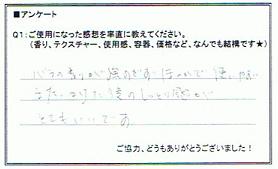 ■アンケート
Q1:ご使用になった感想を率直に教えてください。
(香り、テクスチャー、使用感、容器、価格など、なんでも結構です★)
バラの香りが強すぎずほのかで良い
また、使用後のしっとり感も
とてもいいです
ご協力、どうもありがとうございました!